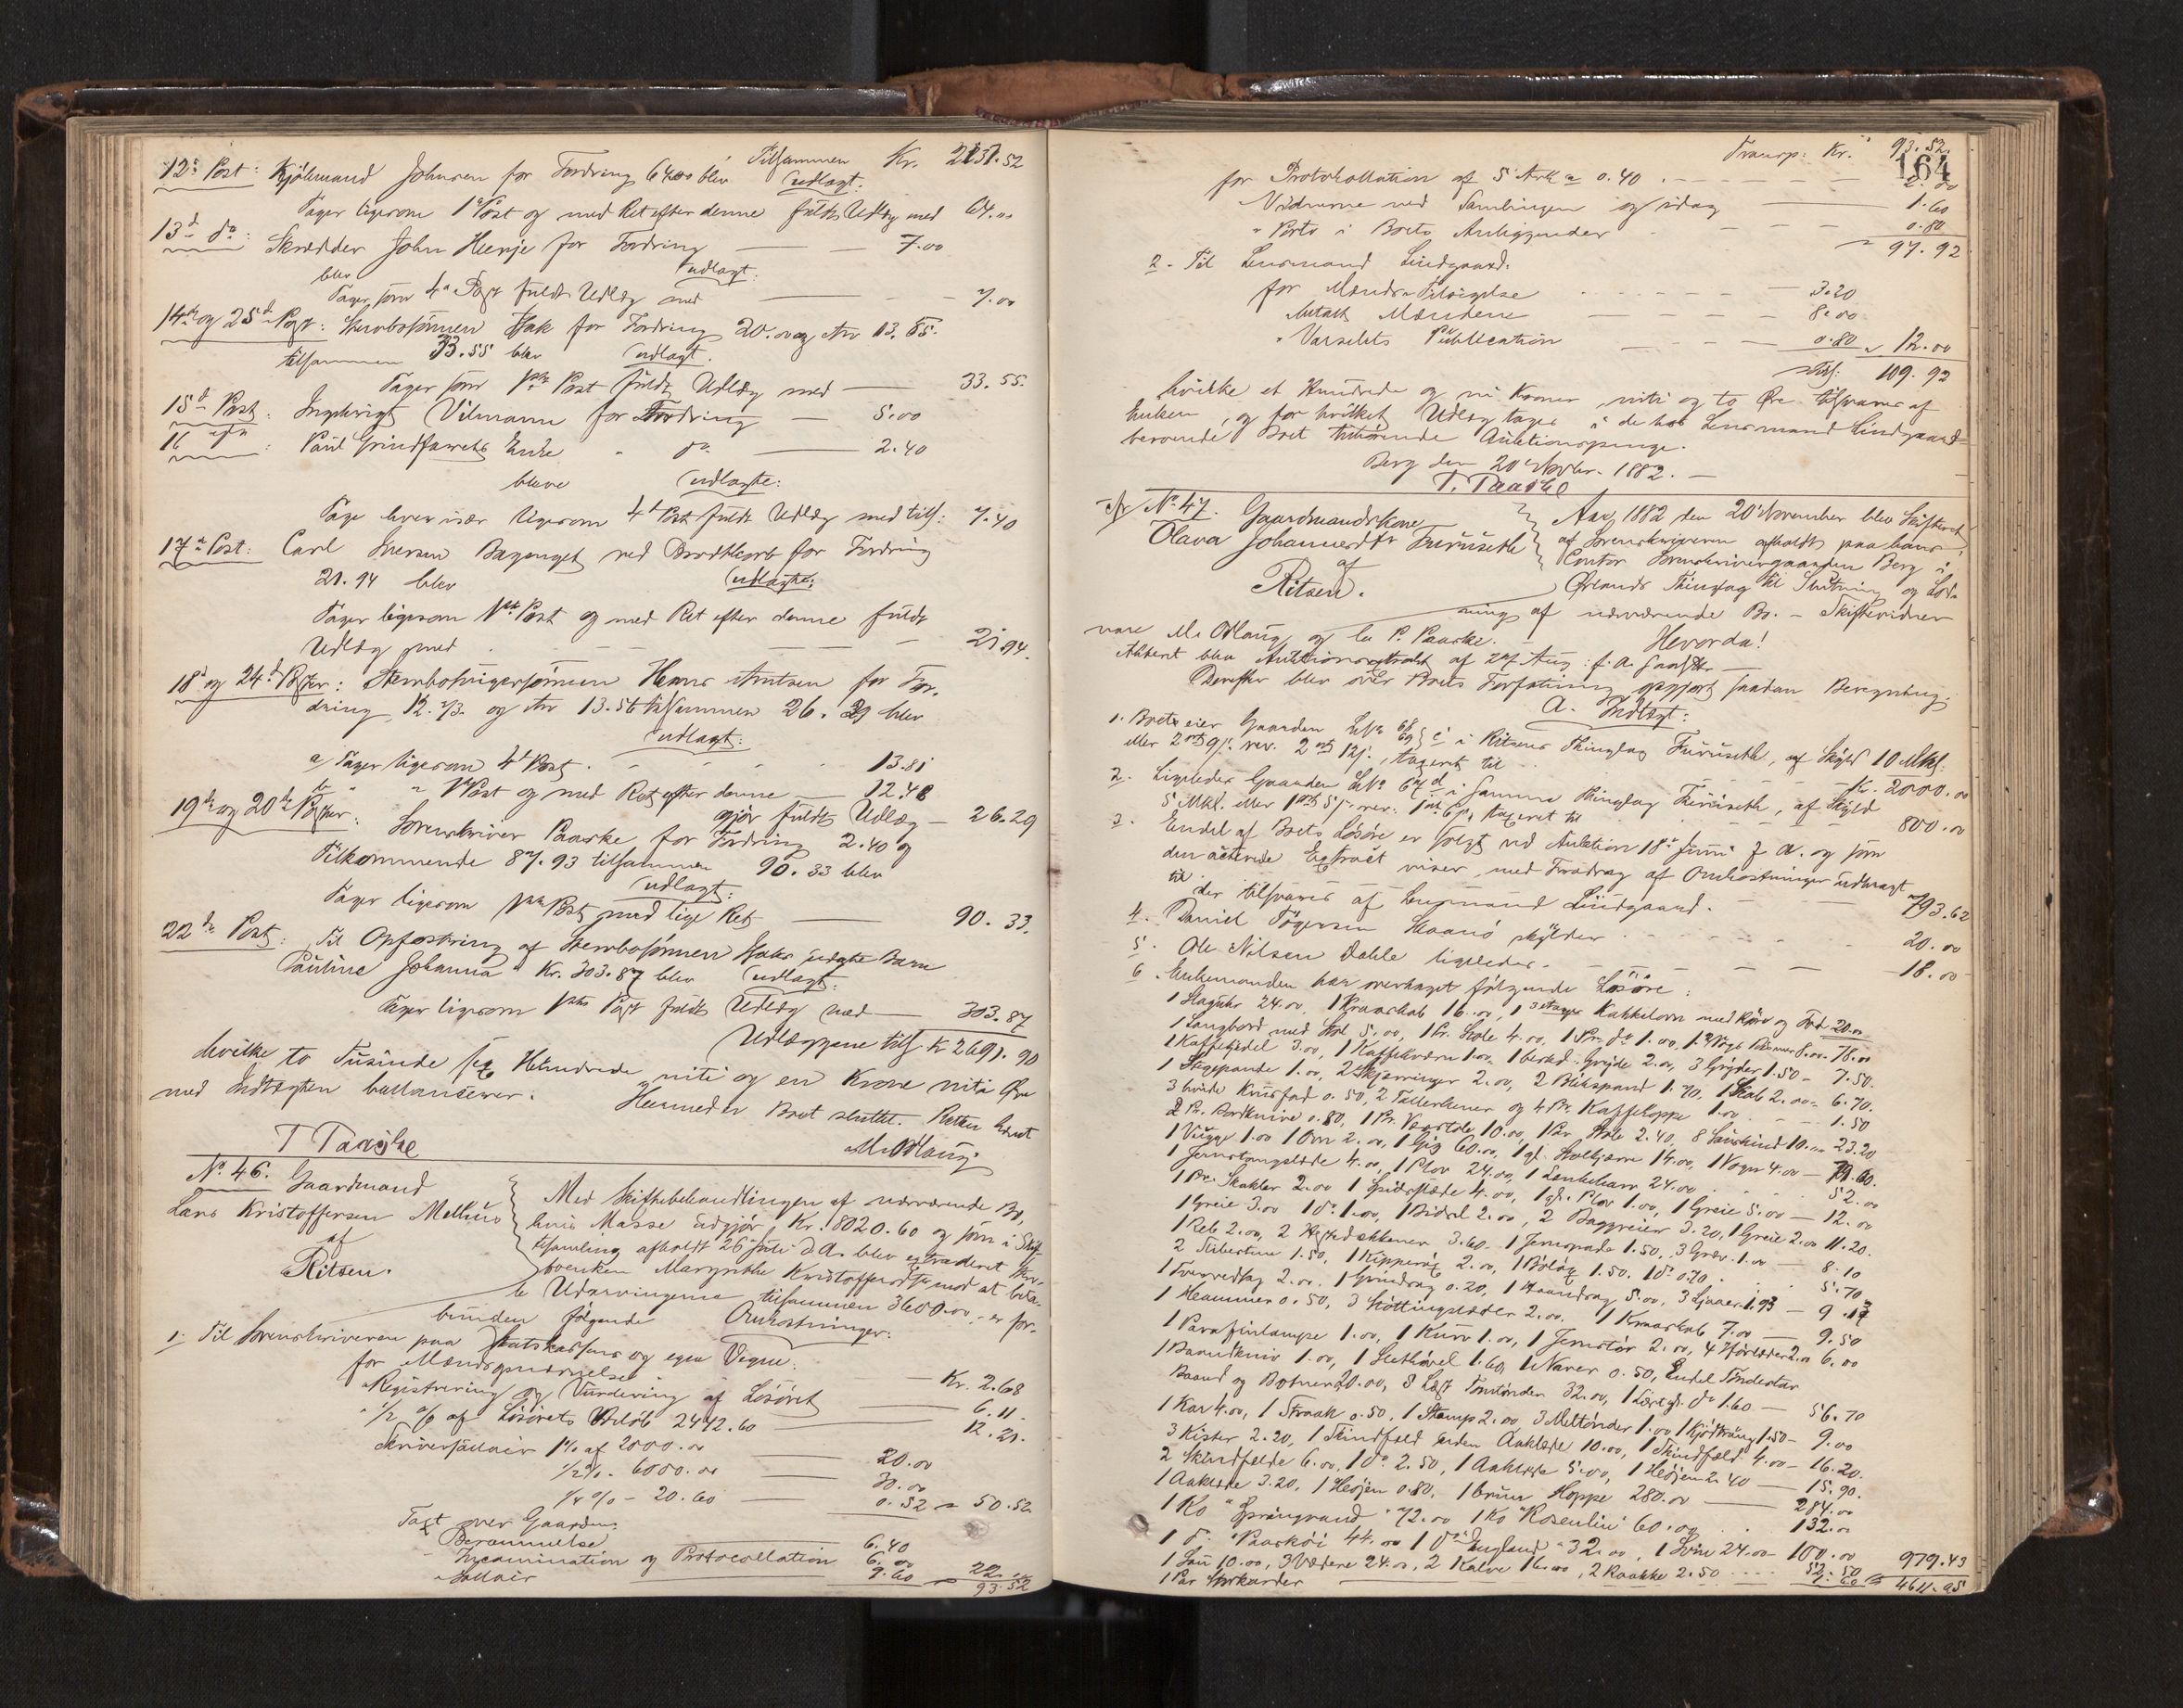 Tilsammen Kr. 2137.52
12te Post: Kjölmand Johnsen for Fordring 64.00 blev udlagt:
Tager ligesom 1ste Post og med Ret efter denne fuldt Udlæg med 64.00
13de do: Skrædder John Hernje for Fordring 7.00
blev udlagt:
Tager som 4de Post fuldt Udlæg med 7.00
14de og 25de Post: Stervbosønnen Isak for Fordring 20.00 og Arv 13.55.
tilsammen 33.55 blev udlagt.
Tager som 1ste Post fuldt Udlæg med 33.55.
15de Post: Ingebrigt Vilmann for Fordring 5.00
16de do: Paul Grindfarets Enke " do 2.40
bleve udlagte:
Tage hver især ligesom 4de Post fuldt Udlæg med tils: 7.40
17de Post: Carl Iversen ved for Fordring
21.94 blev udlagte:
Tager ligesom 1ste Post og med Ret efter denne fuldt
Udlæg med 21.94.
18de og 24de Poster: Hemme Arntsen for For-
dring 12.73. og Arv 13.56 tilsammen 26.29 blev
udlagt:
a/ Tager ligesom 4de Post. 13.81
b " " 1ste Post og med Ret efter denne 12.48
gjør fuldt Udlæg — 26.29
19de og 20de Poster: Sorenskriver Paaske for Fordring 2.40 og
Tilkommende 87.93 tilsammen 90.33 blev
udlagt:
Tager ligesom 1ste Post med lige Ret 90.33.
22de Post: Til Opfostring af Stervbosønnen Isaks uægte Barn
Pauline Johanna Kr. 303.87 blev udlagt:
Tager ligesom 1ste Post fuldt Udlæg med 303.87
Udlæggene tils. Kr 2691.90
hvilke to Tusinde sex Hundrede niti og en Krone niti Øre
med Indtægten ballancerer. Hermed er Boet sluttet. Retten hævet
T Paaske M. Odlaug
No 46. Gaardmand
Lars Kristoffersen Melhus
af
Ritsen.
Med Skiftebehandlingen af nærværende Bo,
hvis Masse udgjør Kr. 8020.60 og som i Skif-
tesamling afholdt 26 Juli d.A. blev extraderet
Enken Margrethe Kristoffersdtr mod at beta-
le Udarvingerne tilsammen 3600.00, er for-
bunden følgende Omkostninger:
1. Til Sorenskriveren paa Statskassens og egne Vegne:
for Mændsopnævnelse Kr. 2.68
" Registrering og Vurdering af Løsøret 6.11
" 1/2 % af Løsørets Beløb 2442.60 12.21.
Skriversallair 1% af 2000.00 20.00
1/2 % - 6000.00 30.00
1/4 % - 20.60 0.52 = 50.52.
Taxt over Gaarden:
Berammelse 6.40
Incamination og Protocollation 6.00
Sallair 9.60 = 22.00
93.52
Transp: Kr. 93.52.
164
for Protokollation af 5 Ark a 0.40 2.00
" Vidnerne ved Samlingen og idag 1.60
" Porto i Boets Anliggender 0.80
= 97.92
2. Til Lensmand Lindgaard:
for Mændenes Tilsigelse 3.20
" betalt Mændene 8.00
" Varselets Publication 0.80 = 12.00
Tils: 109.92
hvilke et Hundrede og ni Kroner niti og to Øre tilsvares af
Enken, og for hvilket Udlæg tages i de hos Lensmand Lindgaard
beroende Boet tilhørende Auktionspenge.
Berg den 20 Novbr. 1882.
T. Paaske
No 47. Gaardmandskone
Olava Johannesdtr Furuseth
af
Ritsen.
Aar 1882 den 20 November blev Skifteret
af Sorenskriveren afholdt paa hans
Contor Sorenskrivergaarden Berg i
Ørlands Thinglag til Slutning og Lod-
ning af nærværende Bo. - Skiftevidner
vare M. Odlaug og la P. Paaske. Hvorda!
Akteret blev Auktionsextrakt af 27 Aug: f.A.
Derefter blev over Boets Forfatning opgjort saadan Beregning:
A. Indtægt:
1. Boet eier Gaarden LNo 68/69 c i Ritsens Thinglag Furuseth, af Skyld 10 Mkl.
eller 2 ort 9 s. rev. 2 ort 12 s., taxeret til Kr. 2000.00
2. Ligeledes Gaarden LNo 67 d i samme Thinglag Furuseth, af Skyld
5 Mkl. eller 1 ort 5 s. rev: 1 ort 6 s., taxeret til 800.00
3. Endel af Boets Løsøre er solgt ved Auktion 18de Juni f A. og som
den akterede Extract viser, med Fradrag af Omkostninger udbragt
til der tilsvares af Lensmand Lindgaard. 793.62
4. Daniel Tögersen skylder 20.00
5. Ole Nilsen Dahle ligeledes. 18.00
6. Enkemanden har overtaget følgende Løsøre:
1 Slaguhr 24.00, 1 Kraaskab 16.00, 1 3 etages Kakkelovn med Rør og Fod 20.00
1 Langbord med Stol 5.00, 1 Pr. Stole 4.00, 1 Pr. do 1.00, 8.00 78.00
1 Kaffekjedel 3.00, 1 Kaffekværn 1.00, 1 beskd. Gryde 2.00, 3 Gryder 1.50 - 7.50.
1 Stegepande 1.00, 2 Skjæringer 2.00, 2 Blikspand 1.70, 1 Skab 2.00 - 6.70.
3 hvide Krusfad 0.50, 2 Tallerkener og 4 Pr. Kaffekoppe 1.00 1.50
2 Pr. Bordknive 0.80, 1 Pr. Vævstole 10.00, 1 Par Stole 2.40, 8 Saueskind 10.00 23.20
1 Vugge 1.00 1 Ovn 2.00, 1 Gig 60.00, 1 gl. Hulkjærre 14.00, 1 Vogn 4.00 — 79.60.
1 Jernstangslæde 4.00, 1 Plov 24.00, 1 Lænkeharv 24.00 52.00
1 Pr. Skakler 2.00 1 Spidsslæde 4.00, 1 gl. Plov 1.00, 1 Greie 5.00 — 12.00
1 Greie 3.00 1 do 1.00, 1 Bidsel 2.00, 2 Baggreier 3.20, 1 Greie 2.00 11.20.
1 Reb 2.00, 2 Hestedækkener 3.60. 1 Jernspade 1.50, 3 Grev 1.00 — 8.10
2 1.50, 1 2.00, 1 1.50. 1 do 0.70 5.70
1 2.00. 1 Grindsag 0.20, 1 Haandsag 5.00, 3 Ljaaer 1.93 — 9.13
1 Hammer 0.50, 3 2.00. 1 Kraaskab 7.00 — 9.50
1 Parafinlampe 1.00, 1 Kurv 1.00, 1 Jernstör 2.00, 4 2.00 6.00
1 Baandkniv 1.00, 1 Slethøvel 1.60, 1 Naver 0.50, Endel Tøndestav
Baand og Botner 20.00, 8 Læst Tomtønder 32.00, 1 Læst gl. do 1.60 — 56.70
1 Kar 4.00, 1 Traak 0.50, 1 Stamp 2.00, 3 Meltønder 1.00, 1 1.50 — 9.00
3 Kister 2.20, 1 Skindfeld uden Aaklæde 10.00, 1 Skindfeld 4.00 — 16.20.
2 Skindfelde 6.00, 1 do 2.50, 1 Aaklæde 5.00, 1 Høien 2.40 — 15.90.
1 Aaklæde 3.20, 1 Høien 0.80, 1 brun Hoppe 280.00 — 284.00
1 Ko "Sprangrand" 72.00 1 Ko "Rosenlin" 60.00 132.00
1 do "Paaskøi" 44.00 1 do "England" 32.00, 1 Svin 24.00 100.00
1 Sau 10.00, 3 Vædere 24.00, 2 Kalve 16.00, 2 Raakke 2.50 52.50
1 Par Storkarder 1.60 979.43
4611.05